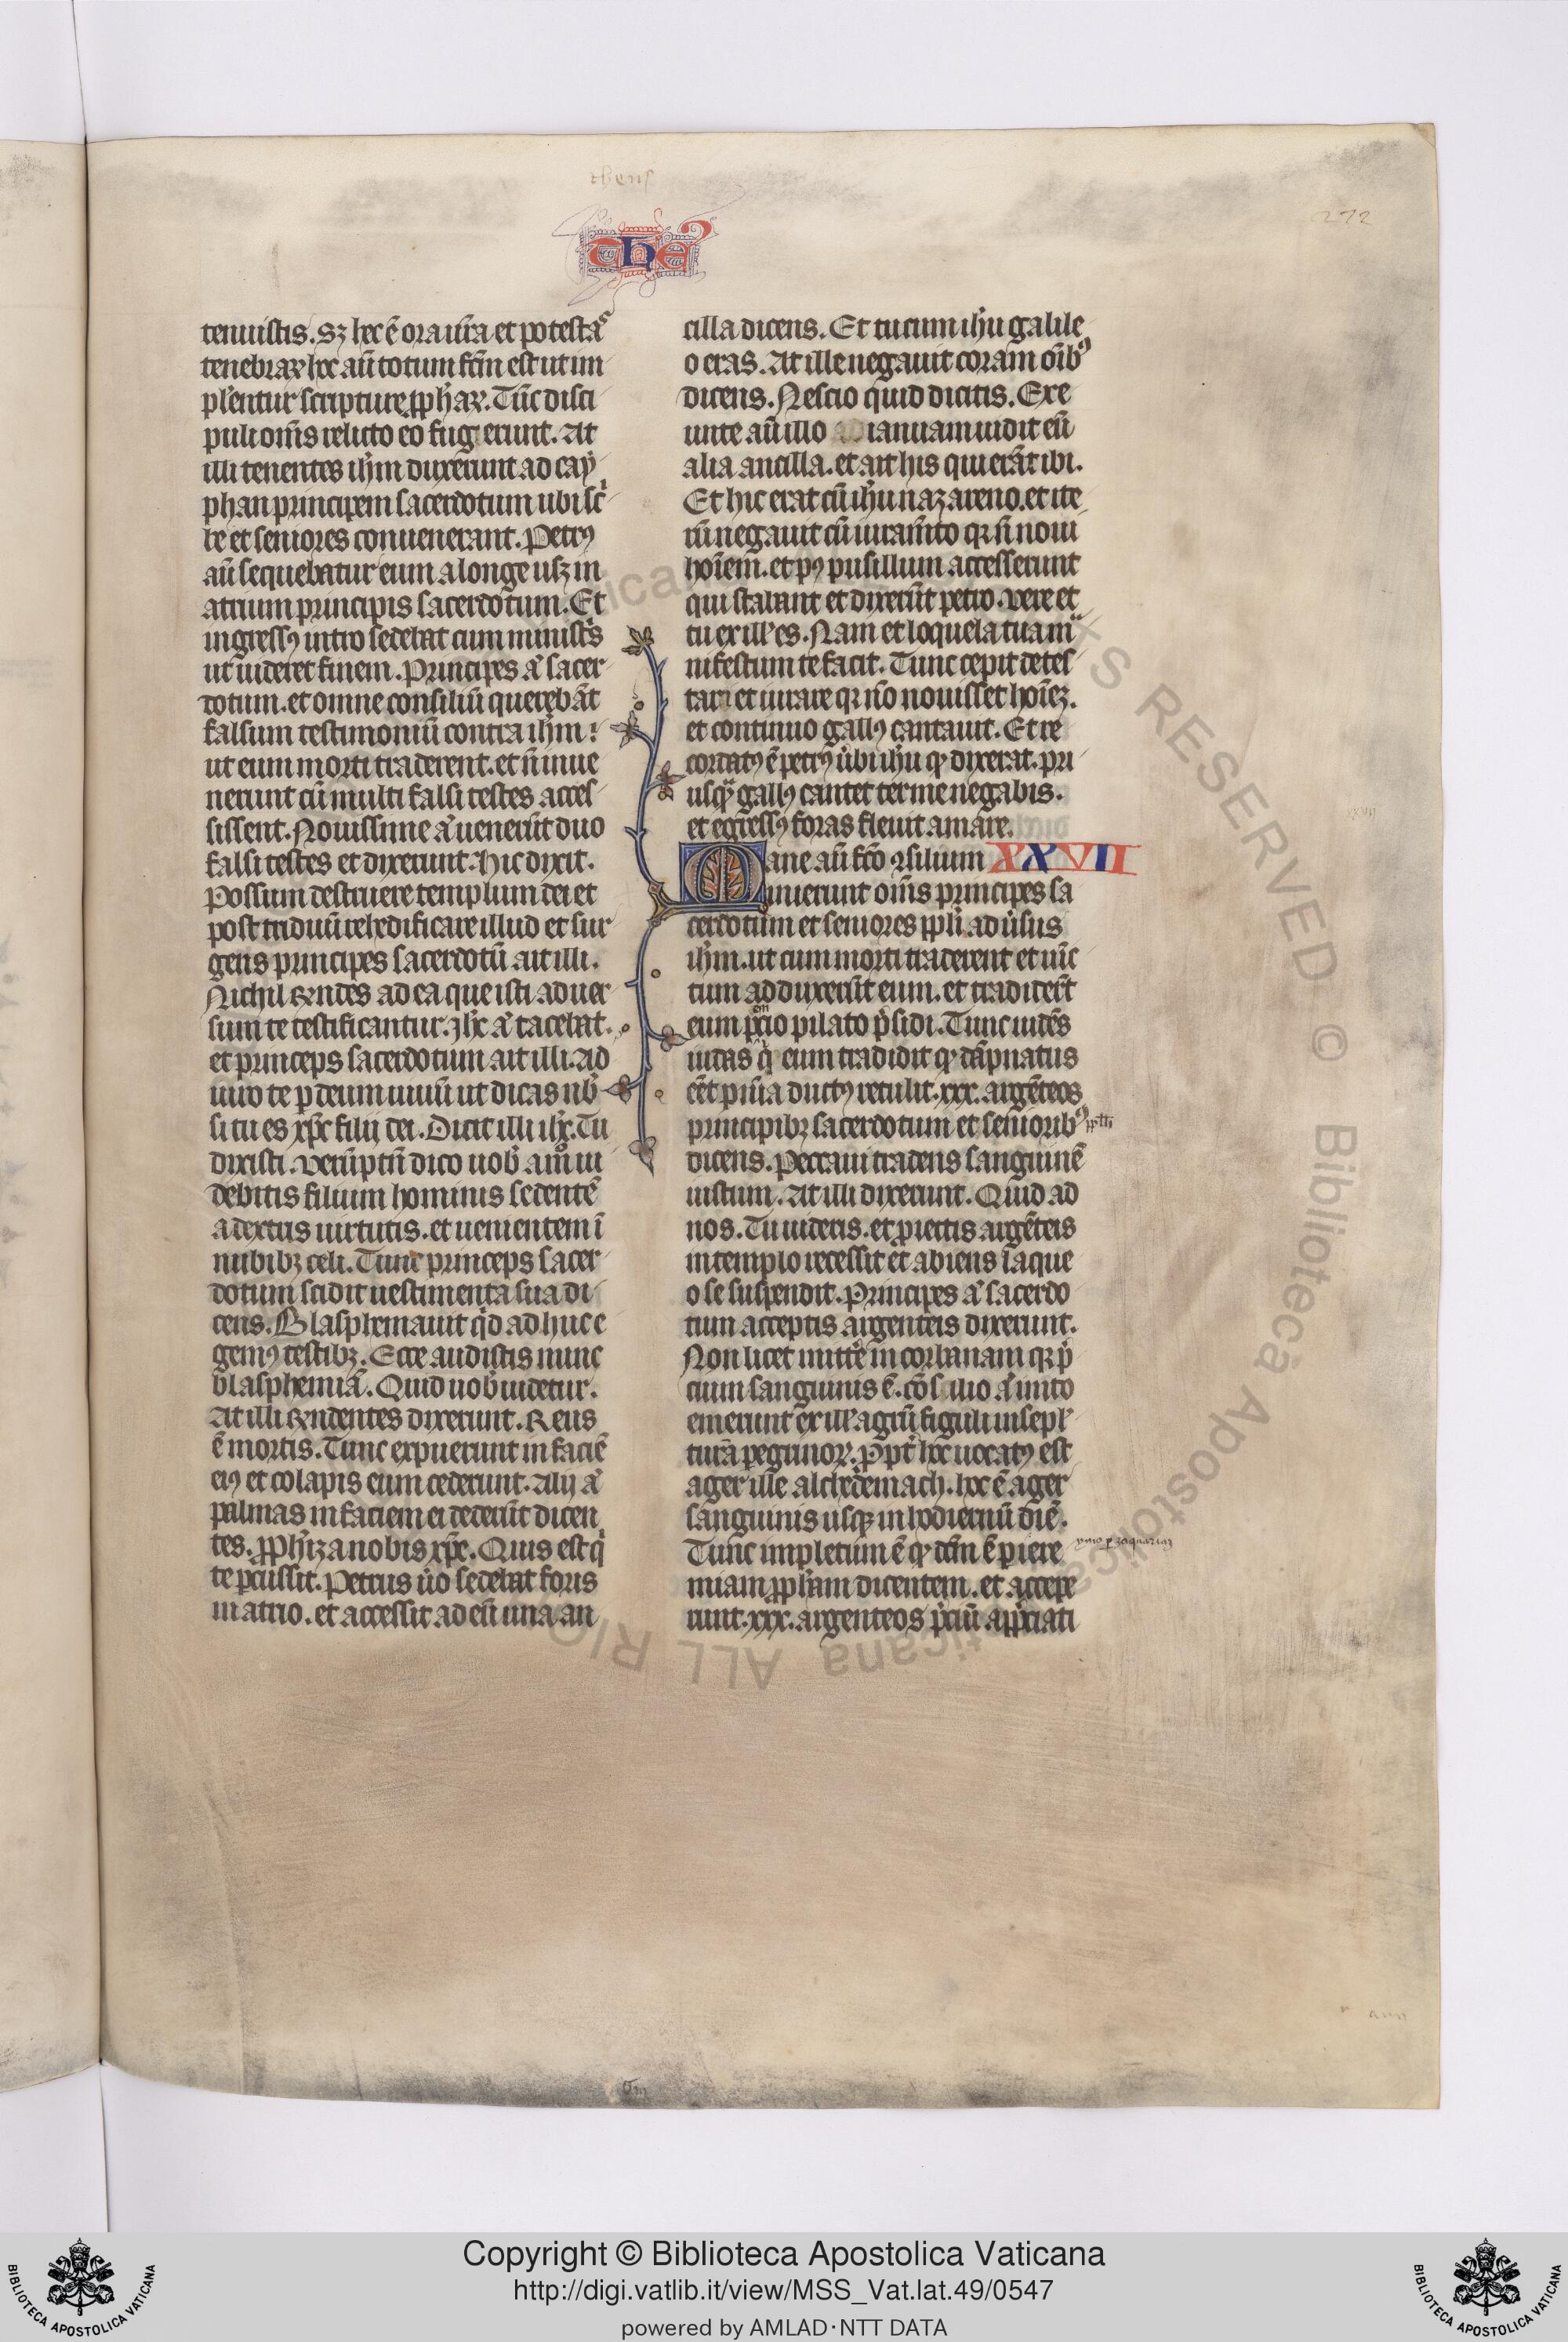 theus
272
THE
tenuistis. Sꝫ hec ē ora ur̄a et potestaˢ
tenebraꝝ hec aūt totum fcm̄ est ut im
plentur scripture ꝓphaꝝ. Tūc disci
puli om̄s relicto eo fugerunt. At
illi tenentes ihm̄ duxerunt ad cay
phan principem sacerdotum ubi sc̄
be et seniores conuenerant. Petrꝰ
aū sequebatur eum a longe usꝫ in
atrium principis sacerdotum. Et
ingressꝰ intro sedebat cum ministˢ
ut uideret finem. Principes aͭ sacer
dotum. et omne consiliū querebāt
falsum testimoniū contra ihm̄:
ut eum morti traderent. et ñ inue
nerunt cū multi falsi testes acces
sissent. Nouissime aͭ uenerūt duo
falsi testes et dixerunt. Hic dixit.
Possum destruere templum dei et
post triduū rehedificare illud et sur
gens principes sacerdotū ait illi.
Nichil rn̄des ad ea que isti aduer
sum te testificantur. ihc aͭ tacebat.
et princeps sacerdotum ait illi. Ad
iuro te ꝑ deum uiuū ut dicas nob̄
si tu es xp̄c filij dei. Dicit illi ihc. Tu
dixisti. Verūptn̄ dico uob̄ amͦ ui
debitis filium hominis sedentē
a dextris uirtutis. et uenientem ī
nubibꝫ celi. Tunc princeps sacer
dotum scidit uestimenta sua di
cens. Blasphemauit qͥd adhuc e
gemꝰ testibꝫ. Ecce audistis nunc
blasphemiā. Quid uob̄ uidetur.
At illi rn̄dentes dixerunt. Reus
ē mortis. Tunc expuerunt in faciē
eiꝰ et colapis eum cederunt. Alij aͭ
palmas in faciem ei dederūt dicen
tes. ꝓphiza nobis xp̄e. Quis est qͥ
te ꝑcussit. Petrus ūo sedebat foris
in atrio. et accessit ad eū una an
cilla dicens. Et tu cum ihu galile
o eras. At ille negauit coram oībꝰ
dicens. Nescio quid dicitis. Exe
unte aū illo ianuam uidit eū
alia ancilla. et ait his qui erāt ibi.
Et hic erat cū ihu nazareno. et ite
rū negauit cū iuramto qꝛ ñ noui
hoīem. et pꝰ pusillum accesserunt
qui stabant et dixerūt petro. vere et
tu ex ill' es. Nam et loquela tua mᵃ
nifestum te facit. Tunc cepit detes
tari et iurare qꝛ nō nouisset hoīeꝫ.
et continuo gallꝰ cantauit. Et re
cordatꝰ ē petrꝰ ūbi ihu qͩ dixerat. pri
usqͣ gallꝰ cantet ter me negabis.
et egressꝰ foras fleuit amare.
Mane aū fco ꝯsilium XXVII
inierunt om̄s principes sa
cerdotum et seniores ppli aduͥsus
ihm̄. ut eum morti traderent et uīc
tum adduxerūt eum. et tradiderūt
eum pōcio pilato pͥsidi. Tunc uidēs
iudas qͥ eum tradidit qͩ dāpnatus
eēt pnīa ductꝰ retulit. xxx. argēteos
principibꝫ sacerdotum et seniorībꝰ ppli
dicens. Peccaui tradens sanguinē
iustum. At illi dixerunt. Quid ad
nos. Tu uideris. et ꝓiectis argēteis
in templo recessit et abiens laque
o se suspendit. Principes aͭ sacerdo
tum acceptis argenteis dixerunt.
Non licet mittͤe in corbanam qꝛ pͥ
cium sanguinis ē. cōsilio aͭ inito
emerunt ex ill' agrū figuli in sepl'
turā ꝑegrinoꝝ. Ꝓpt̄ hoc uocatꝰ est
ager ille alchedemach. hoc ē ager
sanguinis usqꝫ in hodiernū diē.
Tunc impletum ē qͩ dcm̄ ē ꝑ iere ymo ꝑ zaqhariaꝫ
miam ꝓpham dicentem. et accepe
runt. xxx. argenteos pͥciū appͥciati
xxvii
Copyright © Biblioteca Apostolica Vaticana
http://digi.vatlib.it/view/MSS_Vat.lat.49/0547
powered by AMLAD·NTT DATA
BIBLIOTECA APOSTOLICA VATICANA
BIBLIOTECA APOSTOLICA VATICANA
© Biblioteca Apostolica Vaticana ALL RIGHTS RESERVED